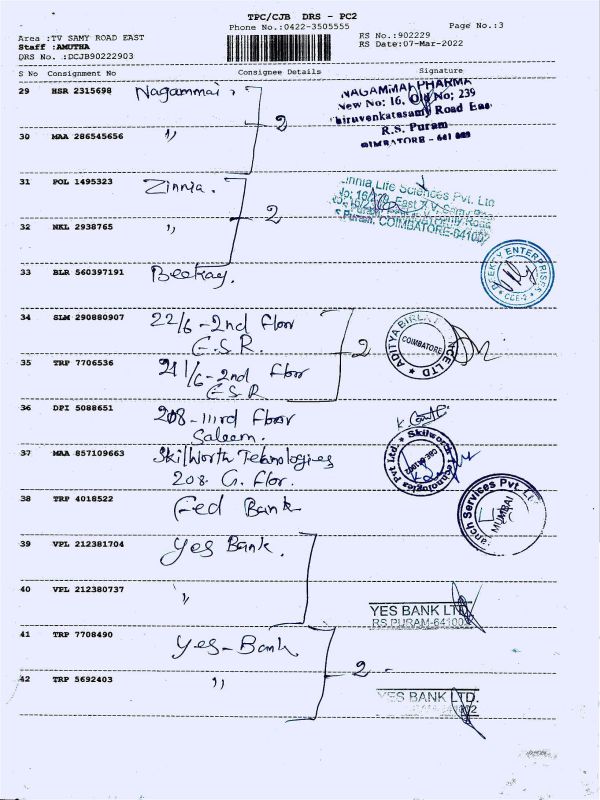 TPC/CJB DRS - PC2
Phone No.:0422-3505555
Page No.:3
Area :TV SAMY ROAD EAST
RS No.:902229
Staff :AMUTHA
RS Date:07-Mar-2022
DRS No. :DCJB90222903
S No Consignment No Consignee Details Signature
29 HSR 2315698 Nagammai
2
NAGAMMAI PHARMA
New No: 16, Old No; 239
Thiruvenkatasamy Road East
R.S. Puram
COIMBATORE - 641 002
30 MAA 286545656 "
31 POL 1495323 Zinnia.
2
Zinnia Life Sciences Pvt. Ltd
COIMBATORE-641002
32 NKL 2938765 "
33 BLR 560397191 Beekay.
ENTERPRISES
CCE-2
34 SLM 290880907 22/6 - 2nd floor
E.S.R.
2
ADITYA BIRLA
COIMBATORE
LTD
35 TRP 7706536 21/6 - 2nd floor
ESR
36 DPI 5088651 208 - IIIrd floor
Saleem.
37 MAA 857109663 Skilworth Teknologies
208. G. flor.
Skilworth
Technologies Pvt Ltd.
38 TRP 4018522 Fed Bank
Services Pvt. Ltd
MUMBAI
39 VPL 212381704 Yes Bank.
40 VPL 212380737 "
YES BANK LTD.
RS.PURAM-641002
41 TRP 7708490 Yes - Bank
2 -
42 TRP 5692403 "
YES BANK LTD.